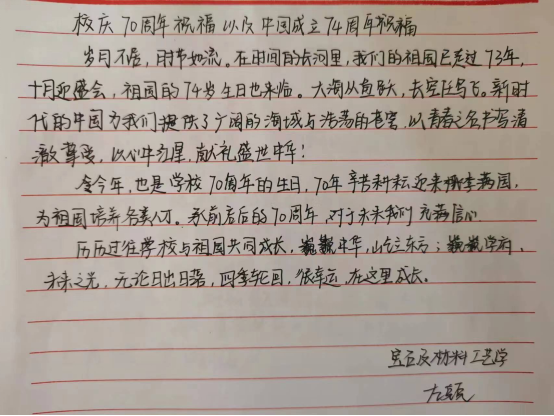 校庆70周年祝福 以及中国成立74周年祝福
岁月不居，时节如流。在时间的长河里，我们的祖国已走过73年，
十月迎盛会，祖国的74岁生日也来临。大海从鱼跃，长空任鸟飞。新时
代的中国为我们提供了广阔的海域与浩荡的苍穹，以青春之名书写清
澈挚爱，以心中红星，献礼盛世中华！
今年，也是学校70周年的生日，70年辛苦耕耘迎来桃李满园，
为祖国培养各类人才。承前启后的70周年，对于未来我们充满信心
历历过往学校与祖国共同成长，巍巍中华，屹立东方；巍巍学府，
未来之光，无论日出日落，四季轮回，很幸运，在这里成长。
宝石及材料工艺学